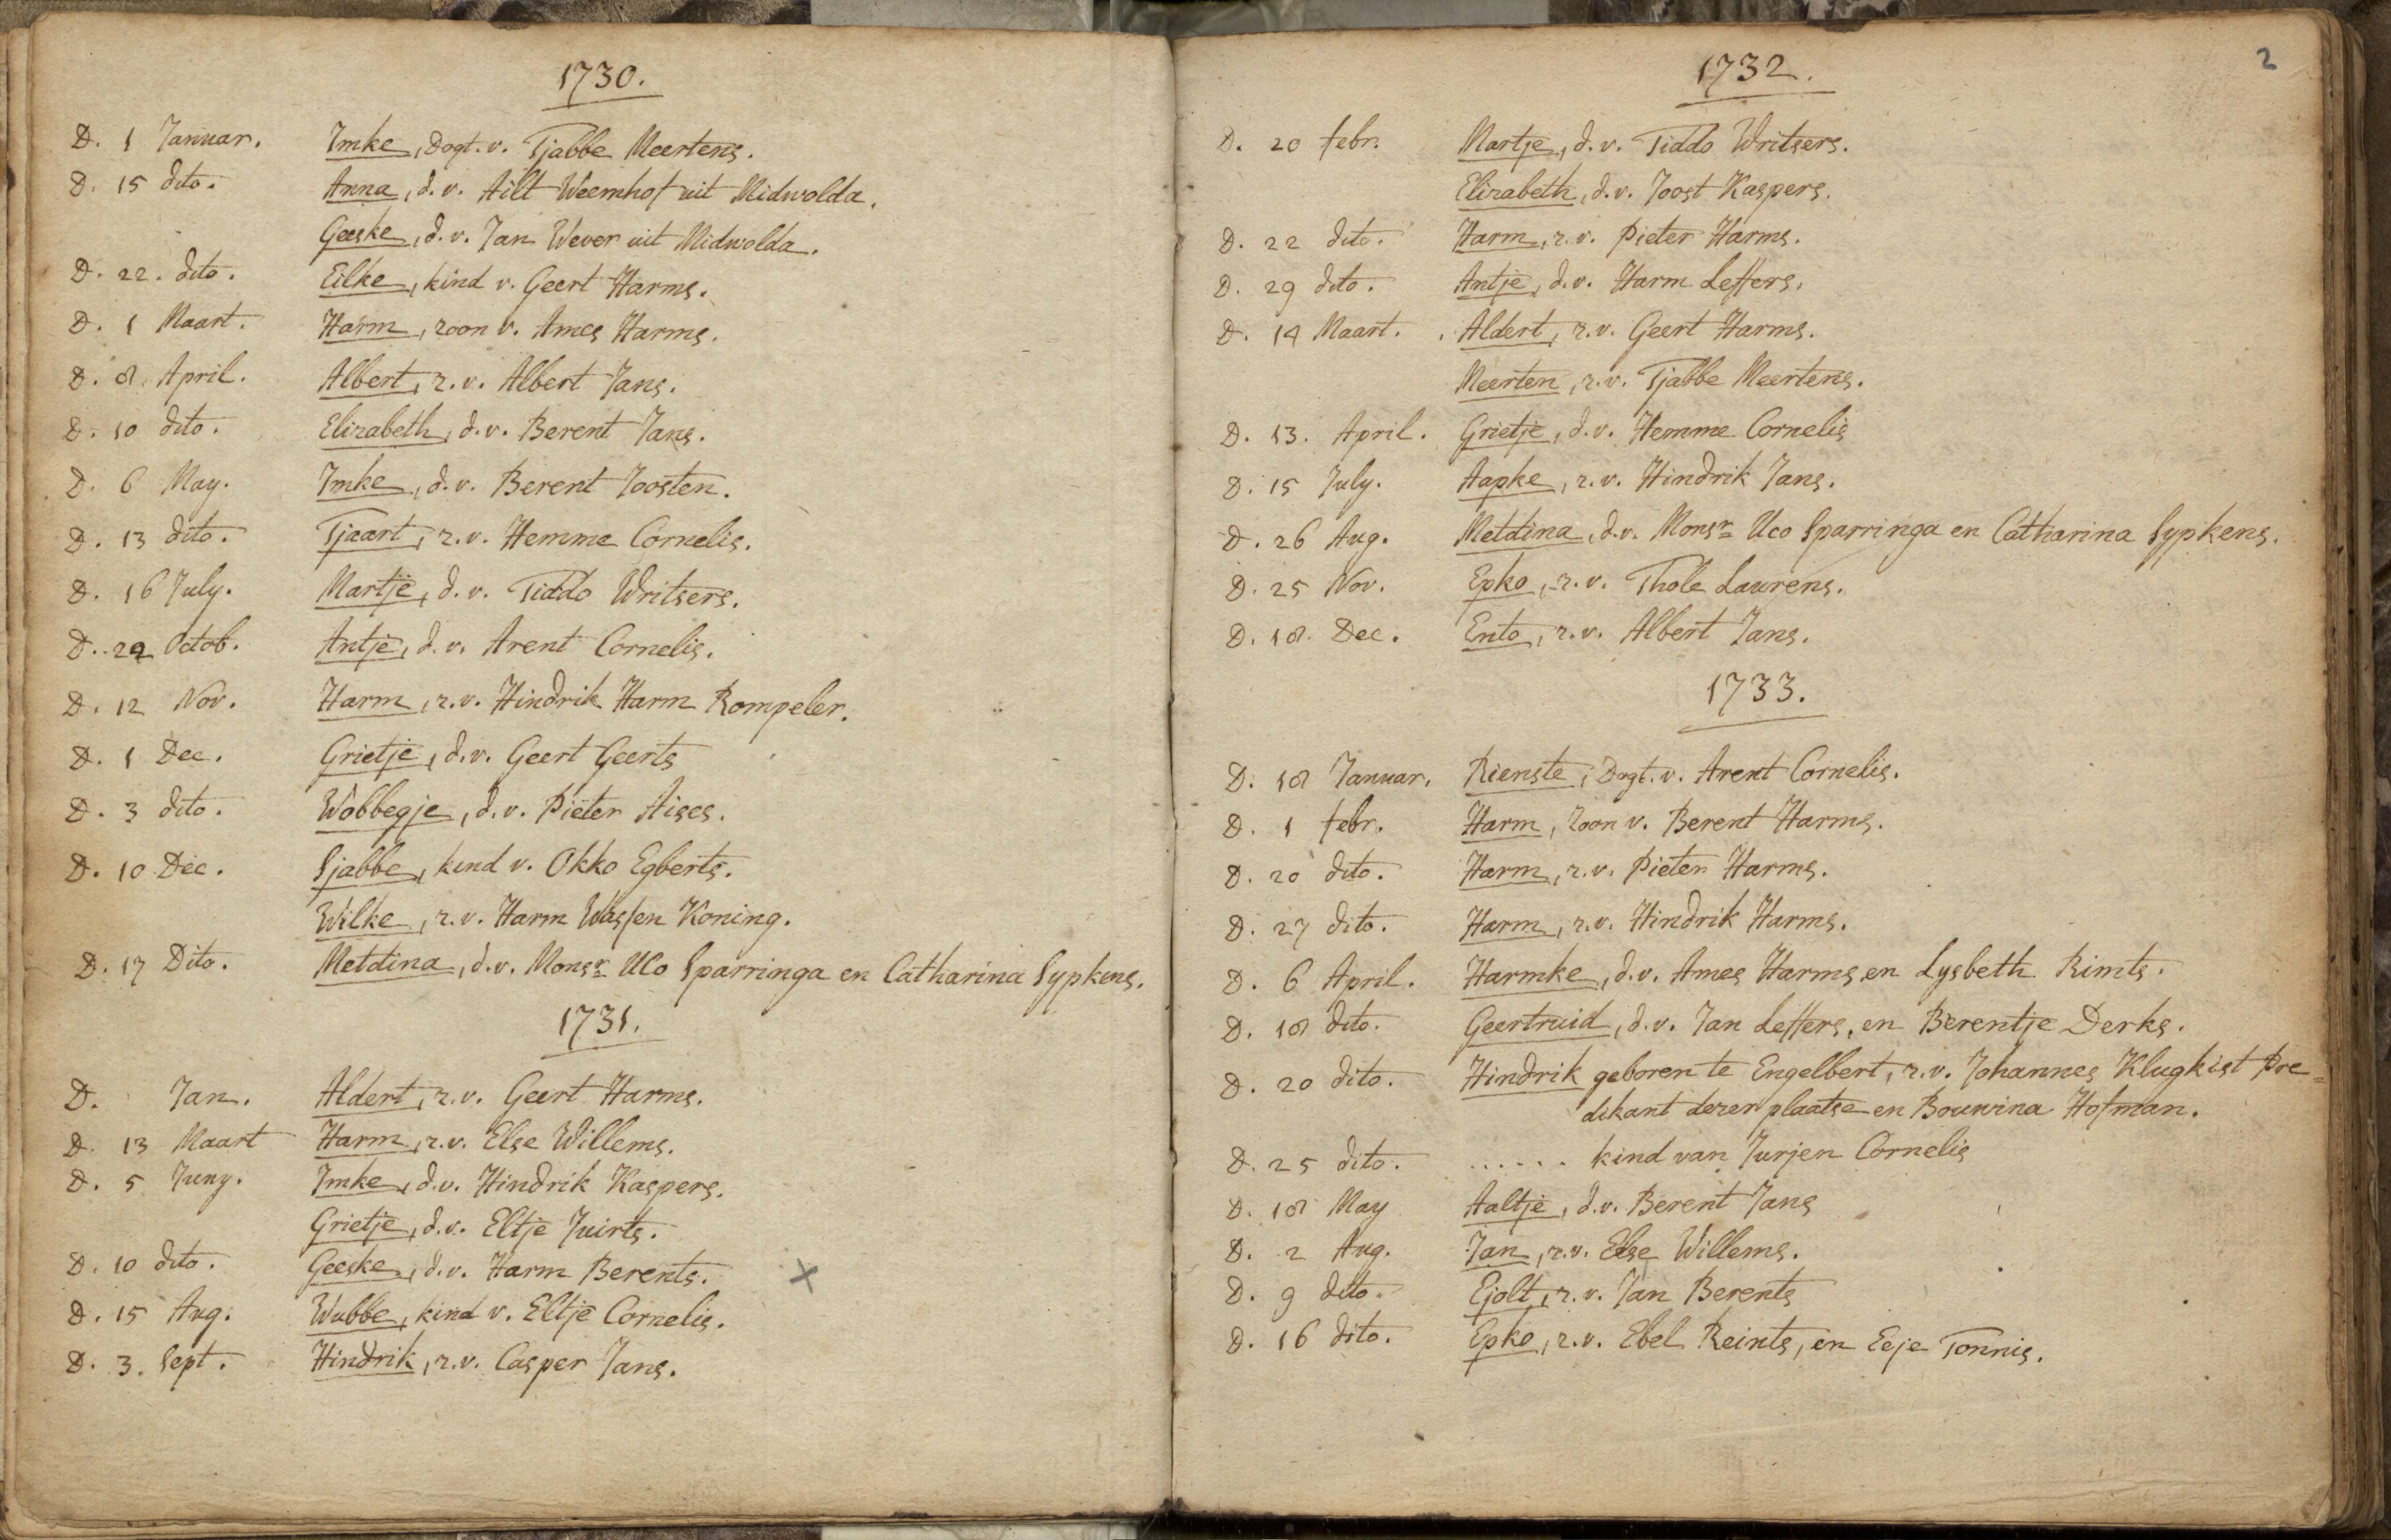 1730.
D. 1 Januar. Imke, Dogt. v. Tjabbe Meertens.
D. 15 dito. Anna, d. v. Ailt Weemhof uit Midwolda.
Geeske, d. v. Jan Wever uit Midwolda.
D. 22. dito. Eilke, kind v. Geert Harms.
D. 1 Maart. Harm, zoon v. Ames Harms.
D. 8 April. Albert, z. v. Albert Jans.
D. 10 dito. Elizabeth, d. v. Berent Jans.
D. 6 May. Imke, d. v. Berent Joosten.
D. 13 dito. Tjaart, z. v. Hemme Cornelis.
D. 16 July. Martje, d. v. Tiddo Writsers.
D. 22 Octob. Antje, d. v. Arent Cornelis.
D. 12 Nov. Harm, z. v. Hindrik Harm Rompeler.
D. 1 Dec. Grietje, d. v. Geert Geerts
D. 3 dito. Wobbegje, d. v. Pieter Aises.
D. 10 Dec. Sjabbe, kind v. Okko Egberts.
Wilke, z. v. Harm Wassen Koning.
D. 17 Dito. Metdina, d. v. Monsr Uco Sparringa en Catharina Sypkens.
1731.
D. Jan. Aldert, z. v. Geert Harms.
D. 13 Maart Harm, z. v. Else Willems.
D. 5 Juny. Imke, d. v. Hindrik Kaspers.
Grietje, d. v. Eltje Juirts.
D. 10 dito. Geeske, d. v. Harm Berents. x
D. 15 Aug. Wubbe, kind v. Eltje Cornelis.
D. 3. Sept. Hindrik, z. v. Casper Jans.
2
1732.
D. 20 febr. Martje, d. v. Tiddo Writsers.
Elizabeth, d. v. Joost Kaspers.
D. 22 dito. Harm, z. v. Pieter Harms.
D. 29 dito. Antje, d. v. Harm Leffers.
D. 14 Maart. Aldert, z. v. Geert Harms.
Meerten, z. v. Tjabbe Meertens.
D. 13. April. Grietje, d. v. Hemme Cornelis
D. 15 July. Aapke, z. v. Hindrik Jans.
D. 26 Aug. Metdina, d. v. Monsr Uco Sparringa en Catharina Sypkens.
D. 25 Nov. Epko, z. v. Thole Laurens.
D. 18. Dec. Ento, z. v. Albert Jans.
1733.
D. 18 Januar. Rienste, Dogt. v. Arent Cornelis.
D. 1 febr. Harm, zoon v. Berent Harms.
D. 20 dito. Harm, z. v. Pieter Harms.
D. 27 dito. Harm, z. v. Hindrik Harms.
D. 6 April. Harmke, d. v. Ames Harms, en Lysbeth Rimts.
D. 18 dito. Geertruid, d. v. Jan Leffers, en Berentje Derks.
D. 20 dito. Hindrik geboren te Engelbert, z. v. Johannes Klugkist Pre=
dikant dezer plaatse en Bouwina Hofman.
D. 25 dito. ...... kind van Jurjen Cornelis
D. 18 May Aaltje, d. v. Berent Jans
D. 2 Aug. Jan, z. v. Else Willems.
D. 9 dito. Ejolt, z. v. Jan Berents
D. 16 dito. Epko, z. v. Ebel Reints, en Eeje Tonnis.